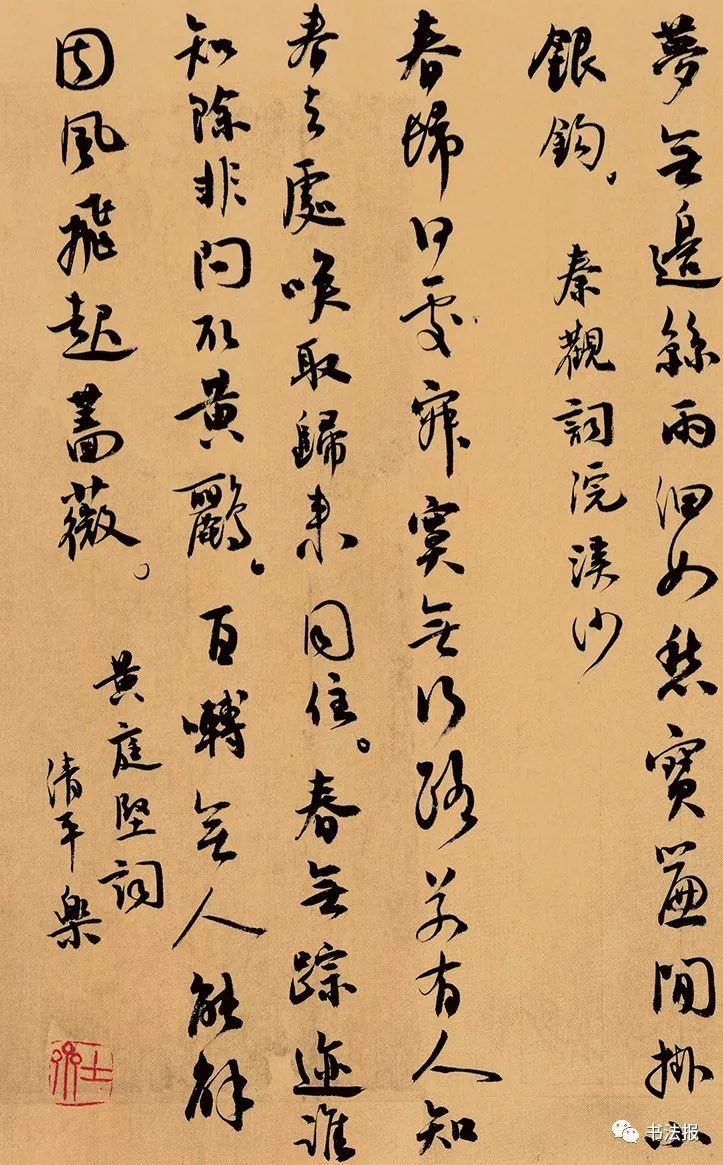 夢無邊絲雨細如愁寶簾閒掛小
銀鈎。
秦觀詞浣溪沙
春歸何處寂寞無行路若有人知
春去處喚取歸來同住。春無踪迹誰
知除非問取黄鸝。百囀無人能解
因風飛起薔薇。
黄庭堅詞
清平樂
书法报